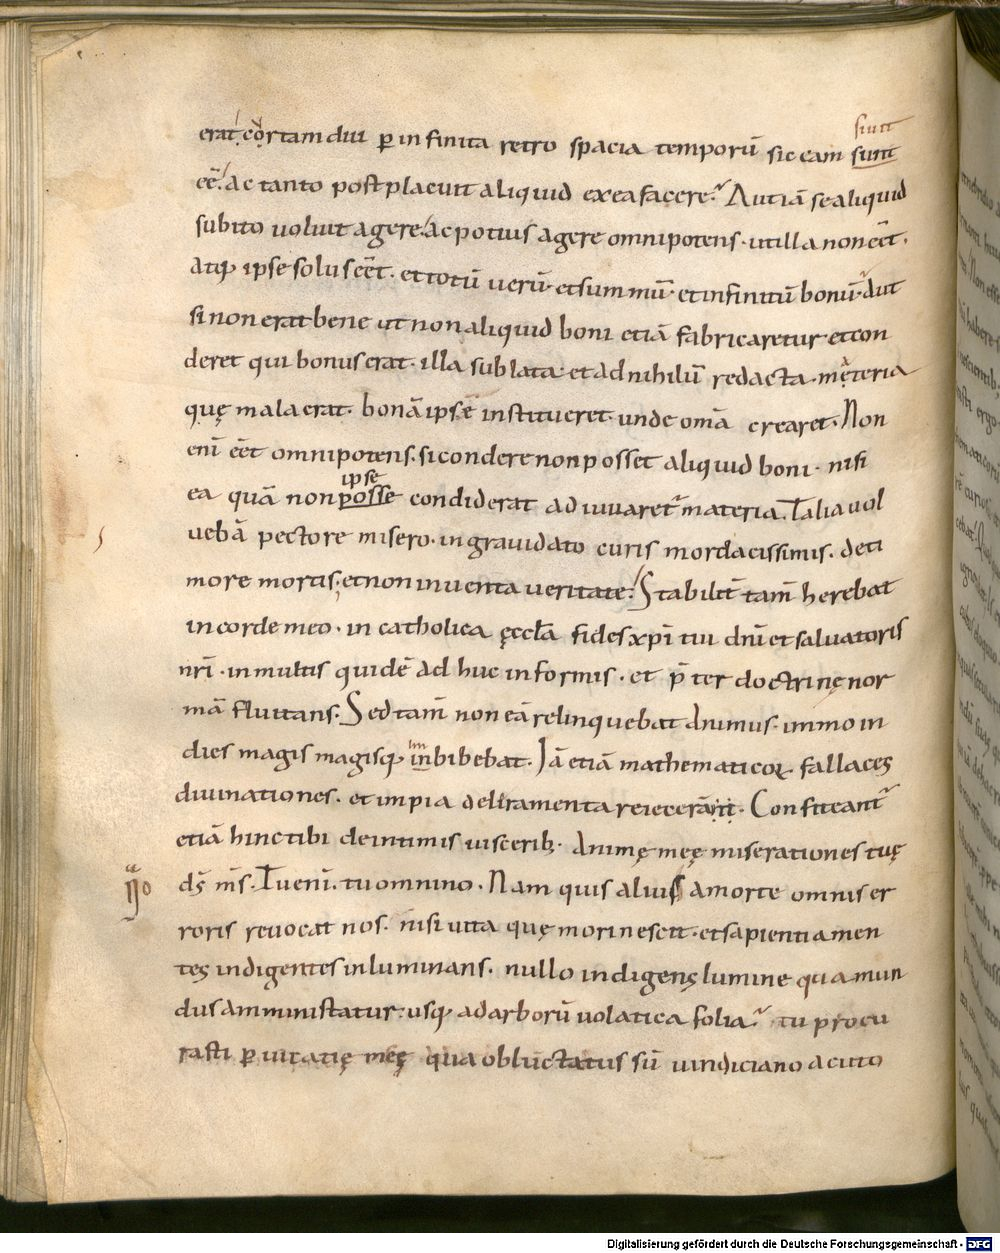 siuit
erat. cor tam diu ꝑ in finita retro spacia temporū sic eam sunt
eē. ac tanto post placuit aliquid ex ea facere. Aut iā se aliquid
subito uoluit agere. ac potius agere omnipotens. ut illa non eēt.
atq; ipse solus eēt. et totū uerū. et summū. et infinitū bonū. Aut
si non erat bene ut non aliquid boni etiā fabricaretur et con
deret qui bonus erat. illa sublata et ad nihilū redacta. męteria
quę mala erat. bonā ipsē institueret unde om̄a crearet. Non
eni eēt omnipotens. si condere non posset aliquid boni. nisi
ipse
ea quā non posse condiderat adiuuaret materia. Talia uol
uebā pectore misero. ingrauidato curis mordacissimis. de ti
more mortis. et non inuenta ueritate. Stabilit tam̄ herebat
in corde meo. in catholica ęccła fides xp̄i tui dn̄i et saluatoris
nr̄i. in multis quidē ad huc informis. et p̄ter doctrinę nor
mā fluitans. Sed tam̄ non eā relinquebat animus. immo in
im
dies magis magisq; inbibebat. Iā etiā mathematicoꝝ fallaces
diuinationes. et impia deliramenta reieceram. Confiteant
etiā hinc tibi de intimis uiscerib; animę meę miserationes tuę
ds̄ ms̄. Tu eni. tu omnino. Nam quis alius a morte omnis er
roris reuocat nos. nisi uita quę mori nescit. et sapientia men
tes indigentes inluminans. nullo indigens lumine qua mun
dus amministatur. usq; ad arborū uolatica folia. tu procu
rasti ꝑuicatię meę qua obluctatus sū uindiciano acuto
Digitalisierung gefördert durch die Deutsche Forschungsgemeinschaft - DFG